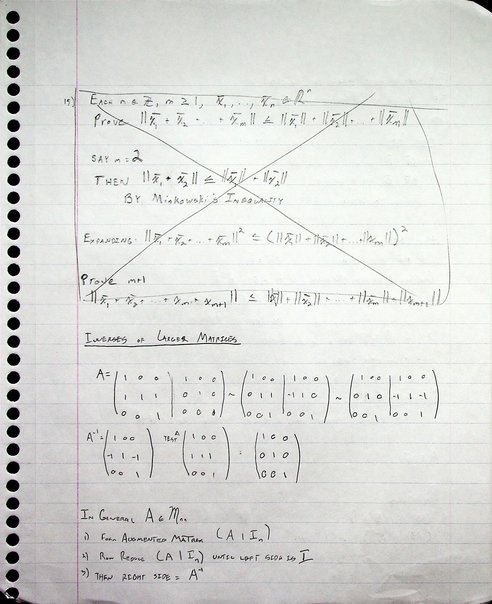 19) EACH m ∈ Z, m ≥ 1, x̄₁, ..., x̄ₙ ∈ ℝⁿ
PROVE ||x̄₁ + x̄₂ + ... + x̄ₘ|| ≤ ||x̄₁|| + ||x̄₂|| + ... + ||x̄ₘ||
SAY m = 2
THEN ||x̄₁ + x̄₂|| ≤ ||x̄₁|| + ||x̄₂||
BY Minkowski's INEQUALITY
EXPANDING: ||x̄₁ + x̄₂ + ... + x̄ₘ||² ≤ (||x̄₁|| + ||x̄₂|| + ... ||xₘ||)²
Prove m+1
||x̄₁ + x̄₂ + ... + xₘ + xₘ₊₁|| ≤ ||x̄₁|| + ||x̄₂|| + ... + ||x̄ₘ|| + ||xₘ₊₁||
INVERSES OF LARGER MATRICES
A = (1 0 0 | 1 0 0) ~ (1 0 0 | 1 0 0) ~ (1 0 0 | 1 0 0)
(1 1 1 | 0 1 0) (0 1 1 | -1 1 0) (0 1 0 | -1 1 -1)
(0 0 1 | 0 0 0) (0 0 1 | 0 0 1) (0 0 1 | 0 0 1)
A⁻¹ = (1 0 0) TEST A (1 0 0) = (1 0 0)
(-1 1 -1) (1 1 1) (0 1 0)
(0 0 1) (0 0 1) (0 0 1)
IN GENERAL A ∈ Mₙₙ
1) FORM AUGMENTED MATRIX (A | Iₙ)
2) ROW REDUCE (A | Iₙ) UNTIL LEFT SIDE IS I
3) THEN RIGHT SIDE = A⁻¹